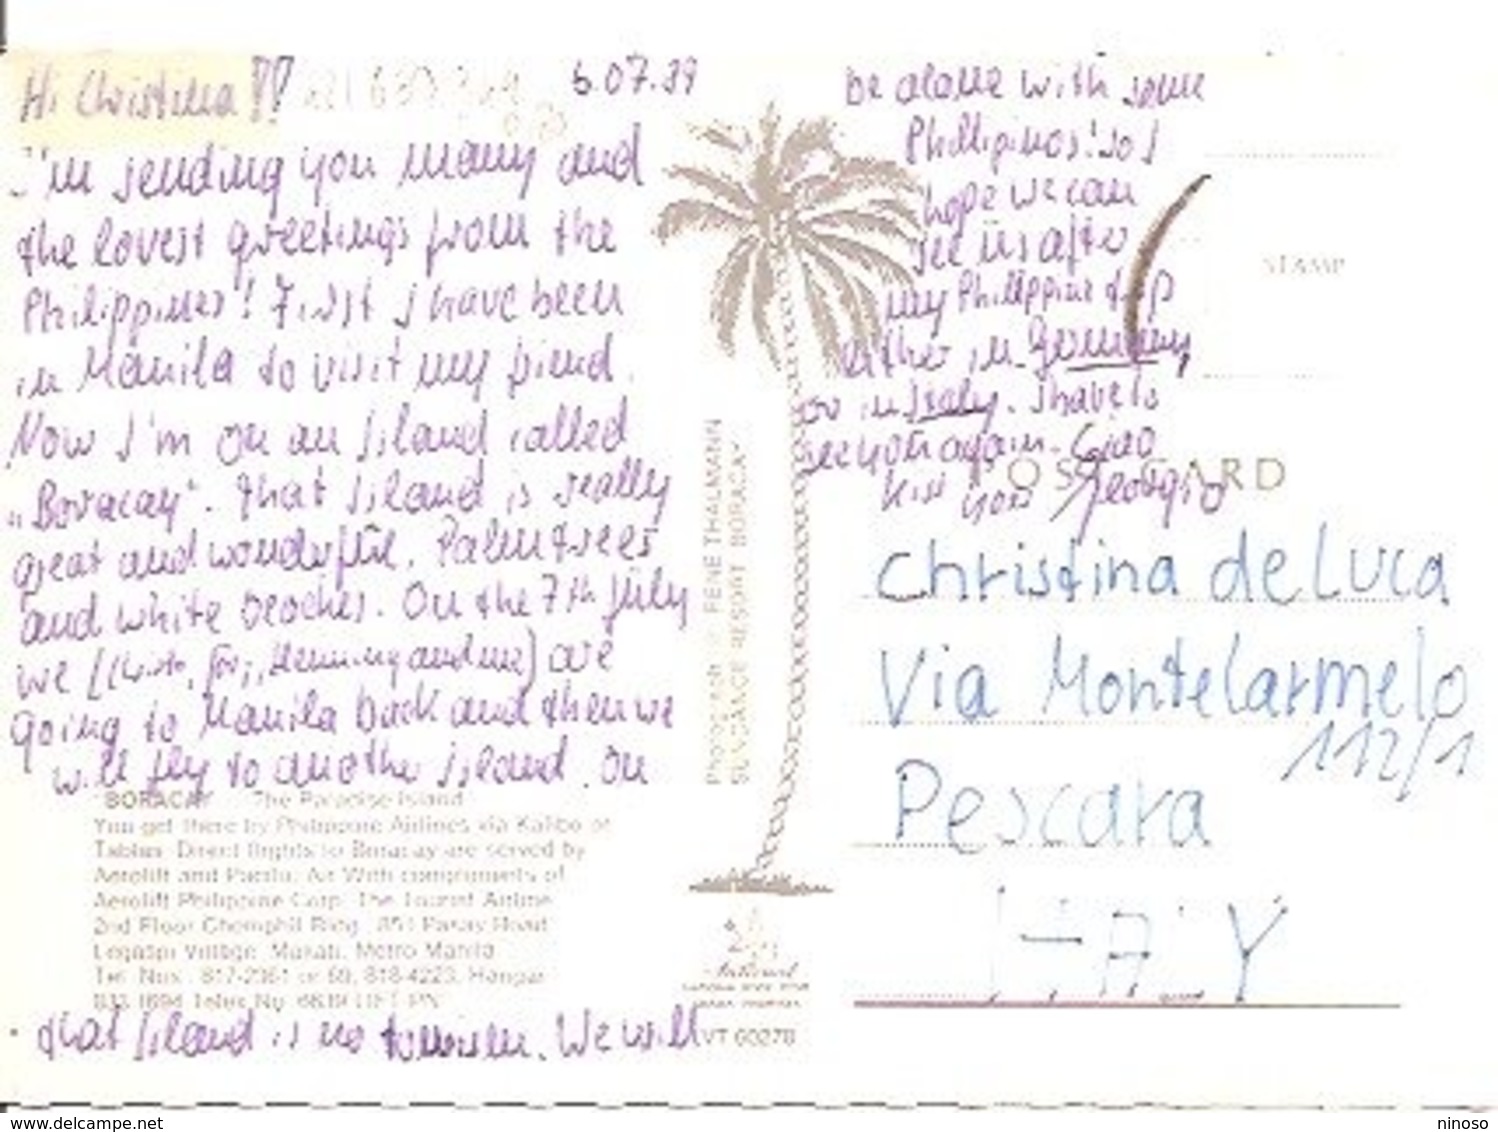 Hi Christina!!
6.07.89
I'm sending you many and
the lovest greetings from the
Philippines! First I have been
in Manila to visit my friend.
Now I'm on an Island called
„Boracay". That Island is really
great and wonderfül. Palmtrees
and white beaches. On the 7th jüly
we (, Henning and me) are
going to Manila back and then we
will fly to another island. On
that Island is no tourism. We will
be alone with some
Phillipinos! So I
hope we can
see us after
my Philippine trip
either in Germany
or in Italy. I have to
see you again. Ciao
Kiss you Georgio
BORACAY The Paradise Island
You get there by Philippine Airlines via Kalibo or
Tablas. Direct flights to Boracay are served by
Aerolift and Pacific Air With compliments of
Aerolift Philippine Corp. The Tourist Airline
2nd Floor Chemphil Bldg., 851 Pasay Road
Legaspi Village, Makati, Metro Manila
Tel. Nos. 817-2361 or 69, 818-4223, Hangar
Telex No.
RENE THALMANN
SUNDANCE RESORT BORACAY
National
VT 60278
STAMP
POST CARD
Christina de Luca
Via Montelarmelo
112/1
Pescara
ITALY
www.delcampe.net
ninoso